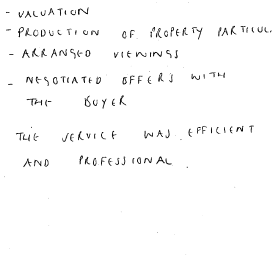 - VALUATION
- PRODUCTION OF PROPERTY PARTICUL
- ARRANGED VIEWINGS
- NEGOTIATED OFFERS WITH
THE BUYER
THE SERVICE WAS EFFICIENT
AND PROFESSIONAL.